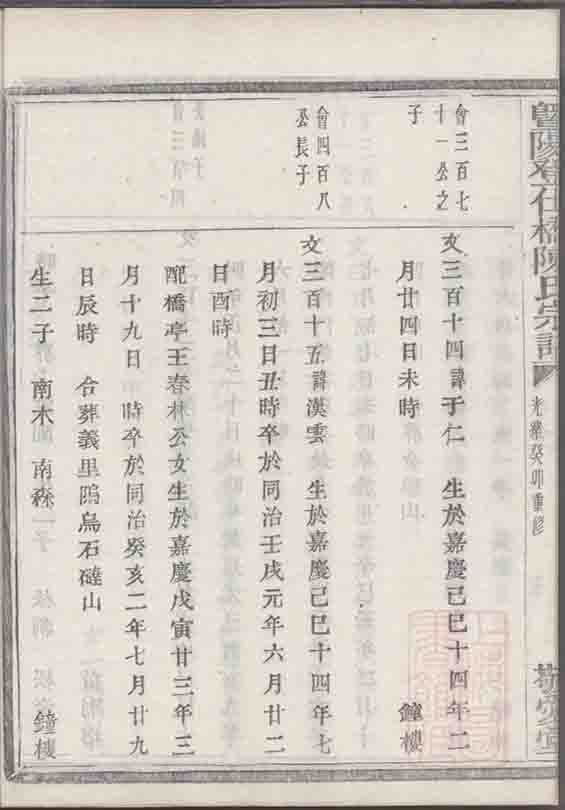 暨陽登仕橋陳氏宗譜
光緒癸卯重修
會三百七
十一公之
子
文三百十四諱于仁 生於嘉慶己巳十四年二
月廿四日未時 鐘樓
會四百八
公長子
文三百十五諱漢雲 生於嘉慶己巳十四年七
月初三日丑時卒於同治壬戌元年六月廿二
日酉時
配橋亭王春林公女生於嘉慶戊寅廿三年三
月十九日 時卒於同治癸亥二年七月廿九
日辰時 合葬義里隖烏石磓山
生二子 南木 南森 鐘樓